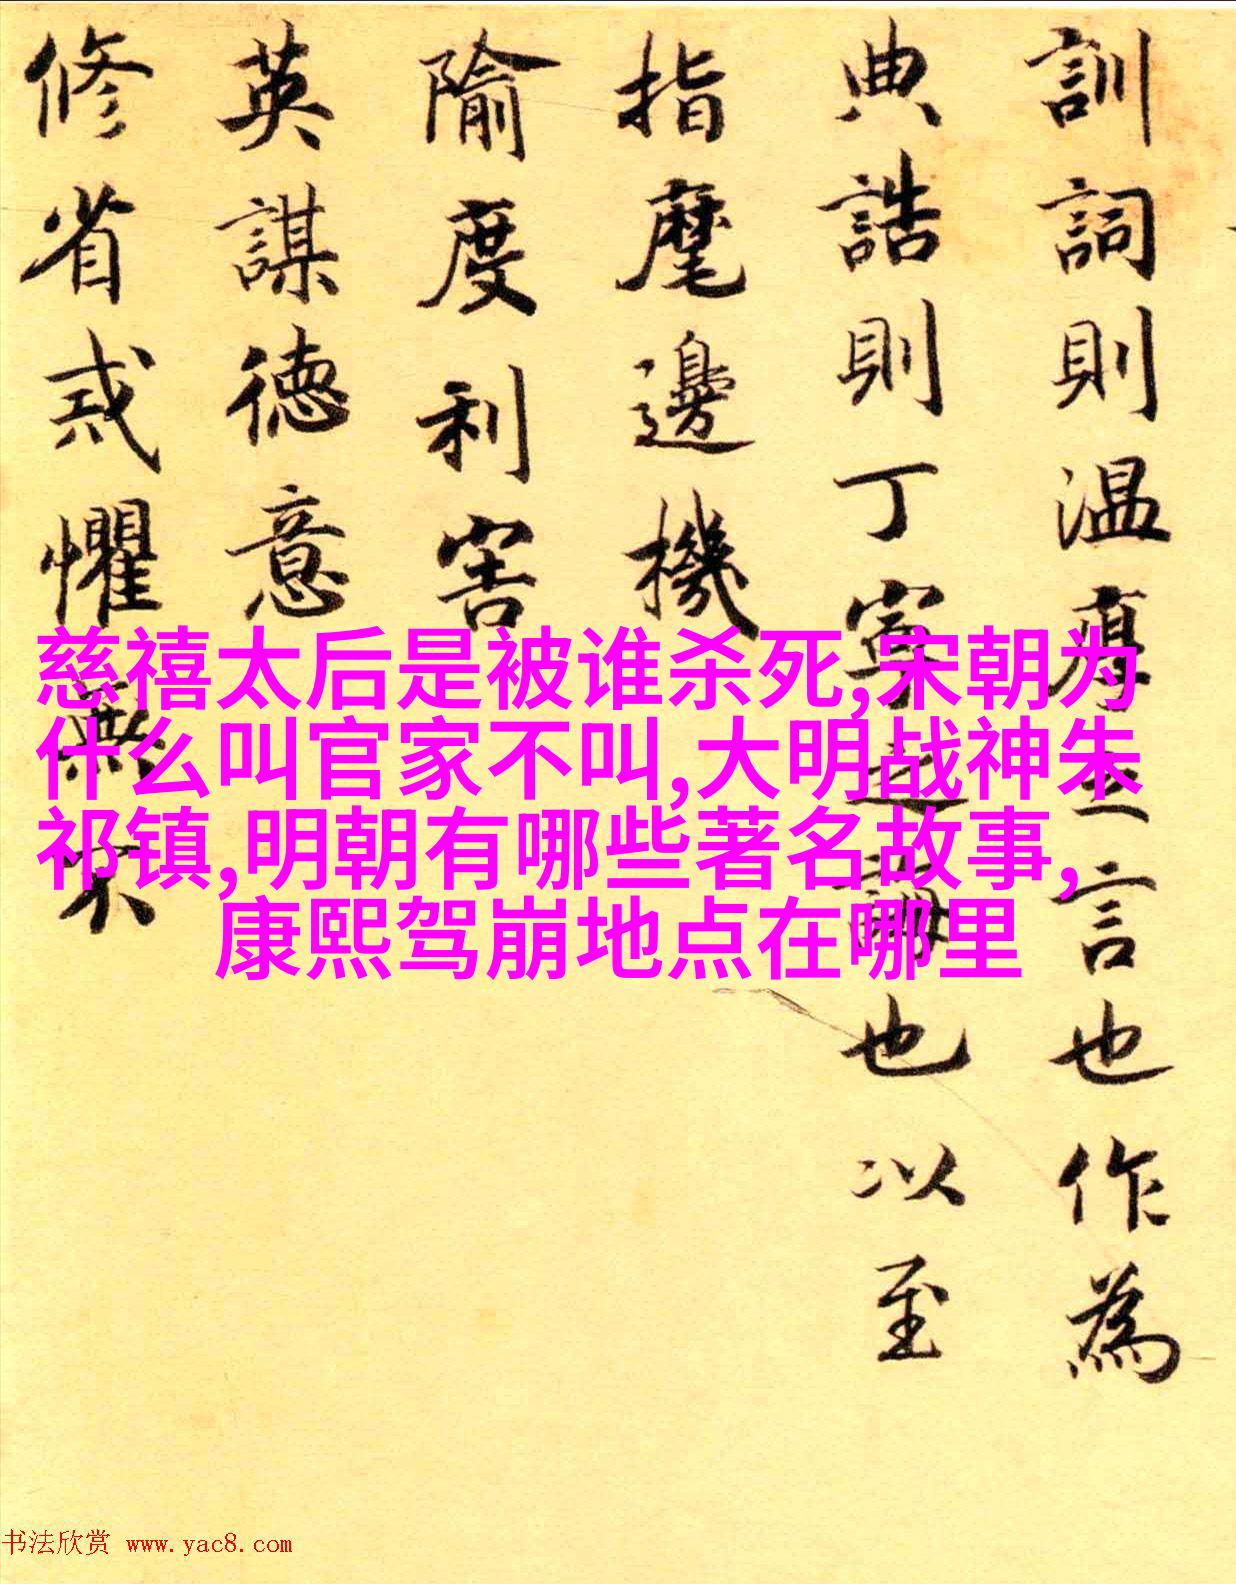 訓詞則温厚之言也作為
典誥則丁寧之誨也以至
指麾邊機
隃度利害
英謀德意
修省戒懼無不
慈禧太后是被谁杀死,宋朝为
什么叫官家不叫,大明战神朱
祁镇,明朝有哪些著名故事,
康熙驾崩地点在哪里
书法欣赏 www.yac8.com